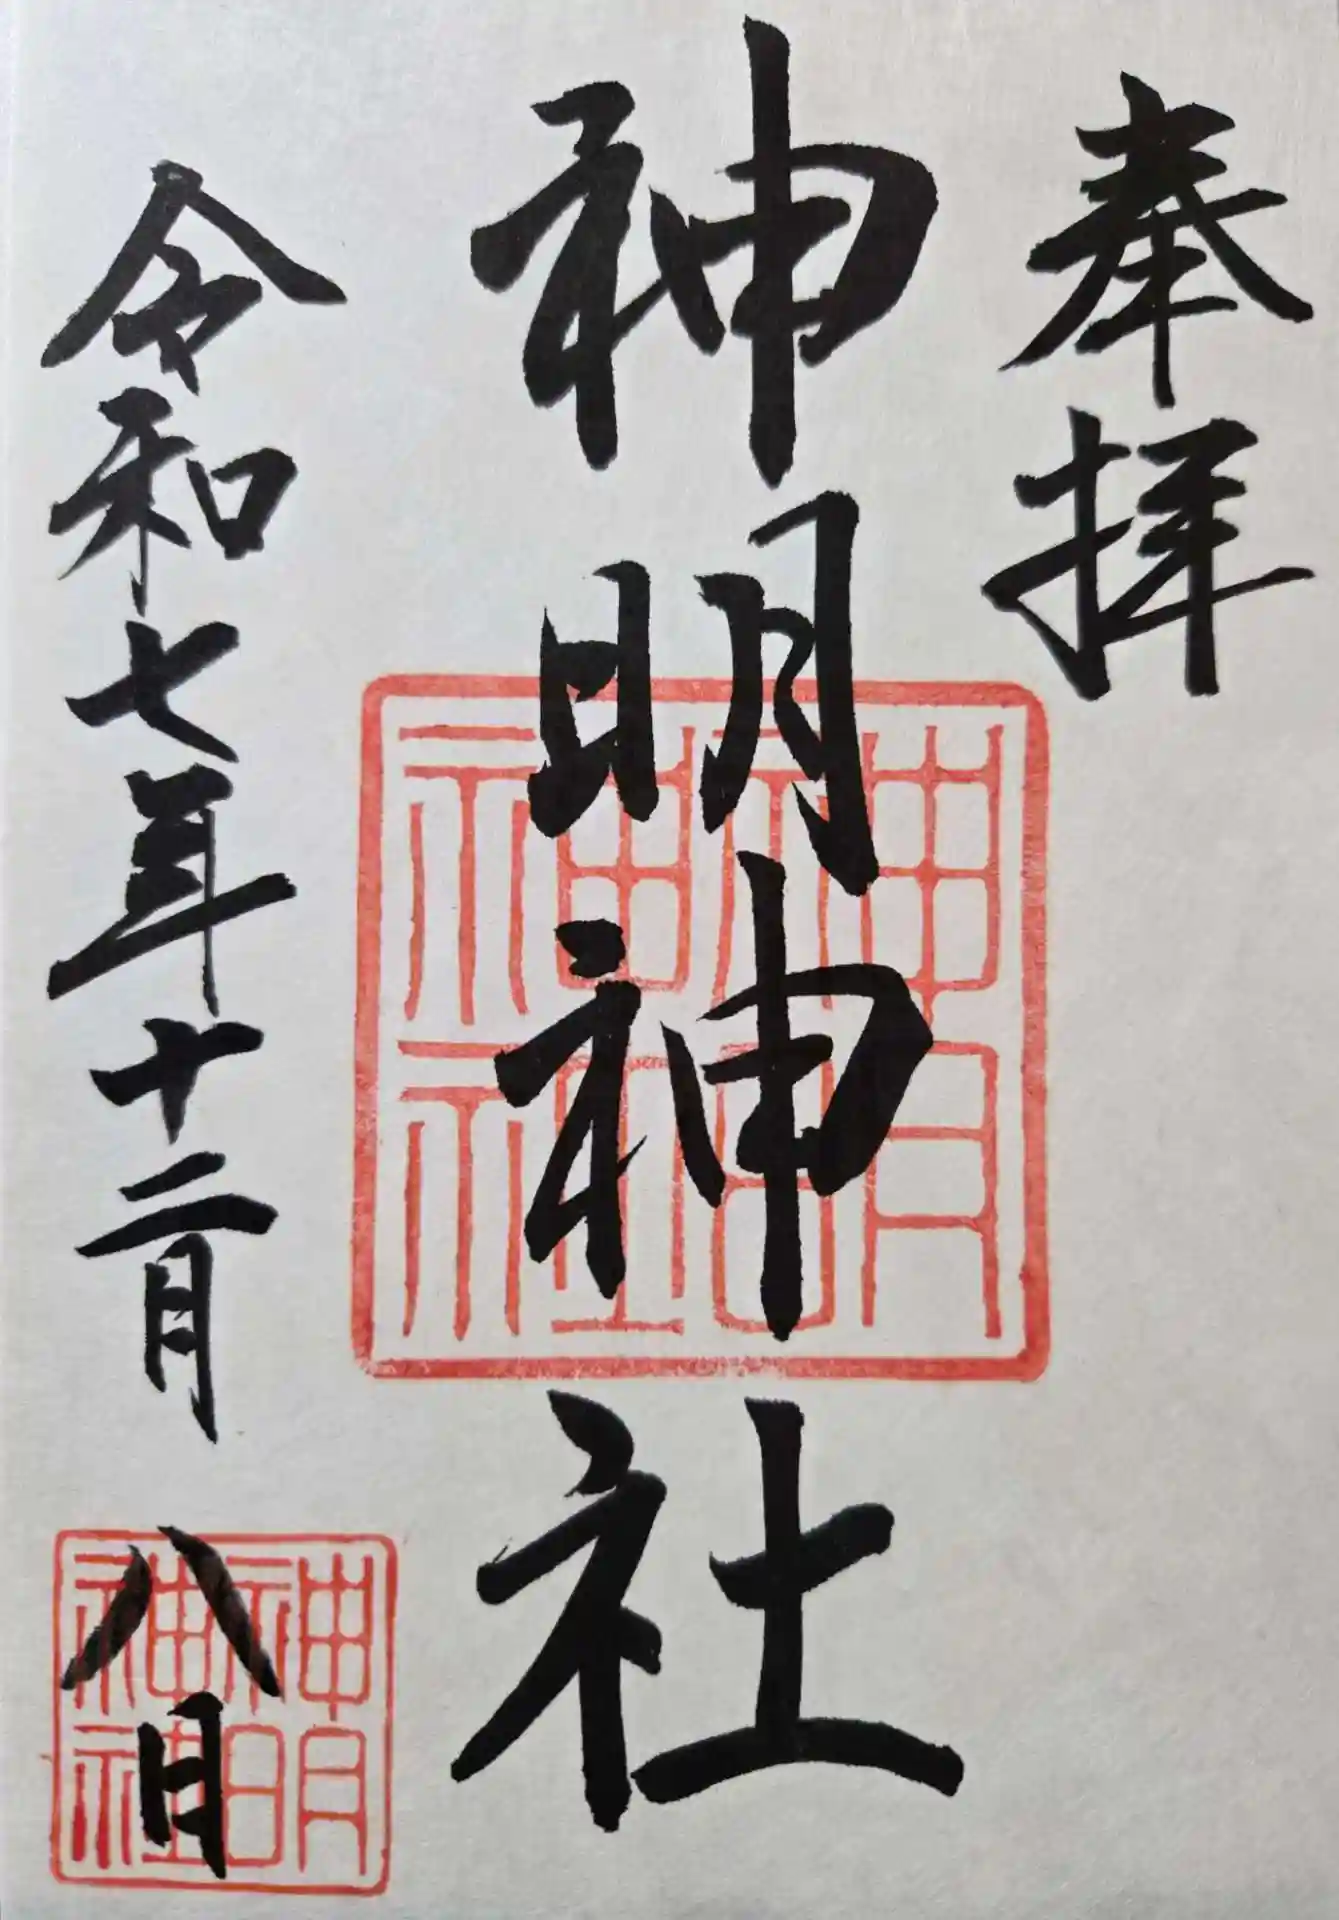 奉拝
神明神社
神明神社
令和七年十二月八日
神明神社